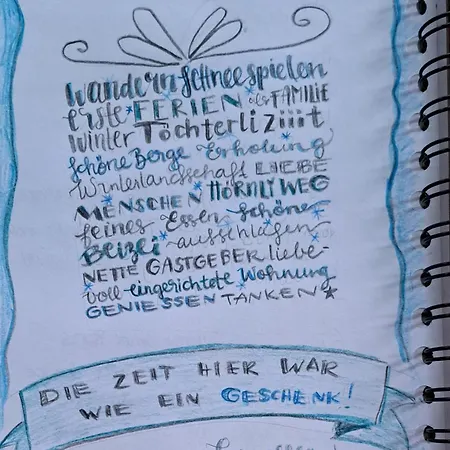 wandern-schneespielen
erste FERIEN als FAMILIE
winter Töchterliziiit
schöne Berge Erholung
Winterlandschaft LIEBE
MENSCHEN HÖRNLIWEG
feines Essen schöne
Beizli ausschlafen
NETTE GASTGEBER liebe-
voll eingerichtete Wohnung
GENIESSEN TANKEN
DIE ZEIT HIER WAR
WIE EIN GESCHENK!